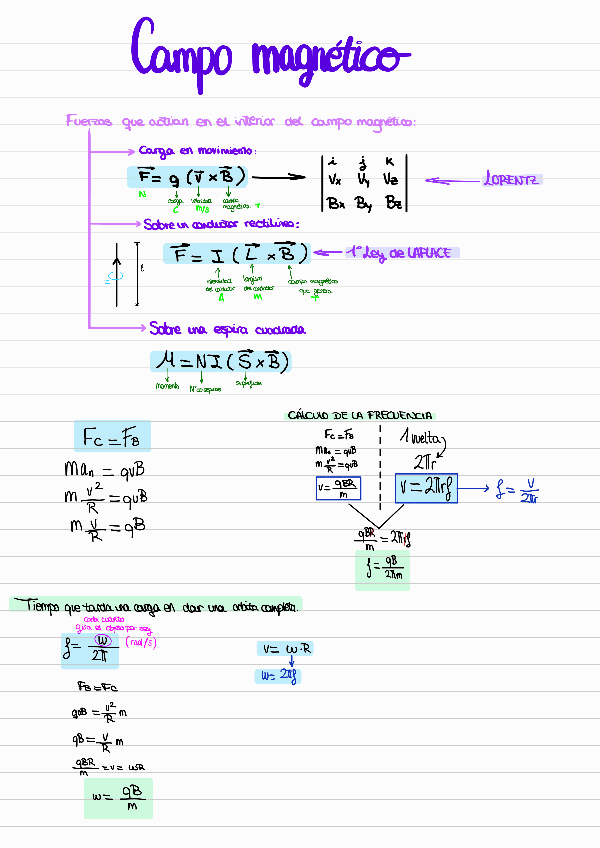 Campo magnético
Fuerzas que actúan en el interior del campo magnético:
Carga en movimiento:
F = q (v × B)
N
carga
C
velocidad
m/s
campo magnético
T
i j k
Vx Vy Vz
Bx By Bz
LORENTZ
Sobre un conductor rectilíneo:
F = I (L × B)
1ª Ley de LAPLACE
intensidad
del conductor
A
longitud
del conductor
M
campo magnético
que genera
T
I
l
Sobre una espira cuadrada
M = NI (S × B)
momento
Nº espiras
superficie
Fc = FB
man = qvB
m v²/R = qvB
m v/R = qB
CÁLCULO DE LA FRECUENCIA
Fc = FB
man = qvB
m v²/R = qvB
v = qBR/m
1 vuelta
2πr
v = 2πrf
f = v/2πr
qBR/m = 2πrf
f = qB/2πm
Tiempo que tarda una carga en dar una orbita completa.
cada cuanto
gira el objeto por seg
f = w/2π
(rad/s)
v = w·R
w = 2πf
FB = Fc
qvB = v²/R m
qB = v/R m
qBR/m = v = wR
w = qB/m